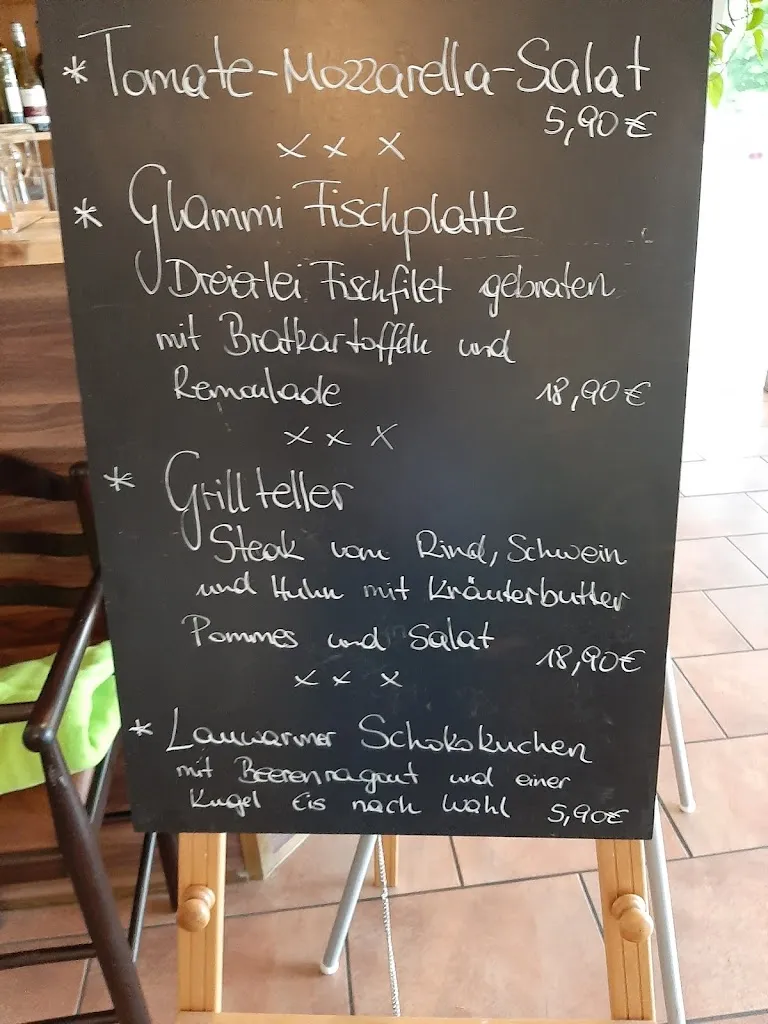 * Tomate-Mozzarella-Salat
5,90€
x x x
* Glammi Fischplatte
Dreierlei Fischfilet gebraten
mit Bratkartoffeln und
Remoulade 18,90€
x x x
* Grillteller
Steak vom Rind, Schwein
und Huhn mit Kräuterbutter
Pommes und Salat
18,90€
x x x
* Lauwarmer Schokokuchen
mit Beerenragout und einer
Kugel Eis nach Wahl 5,90€